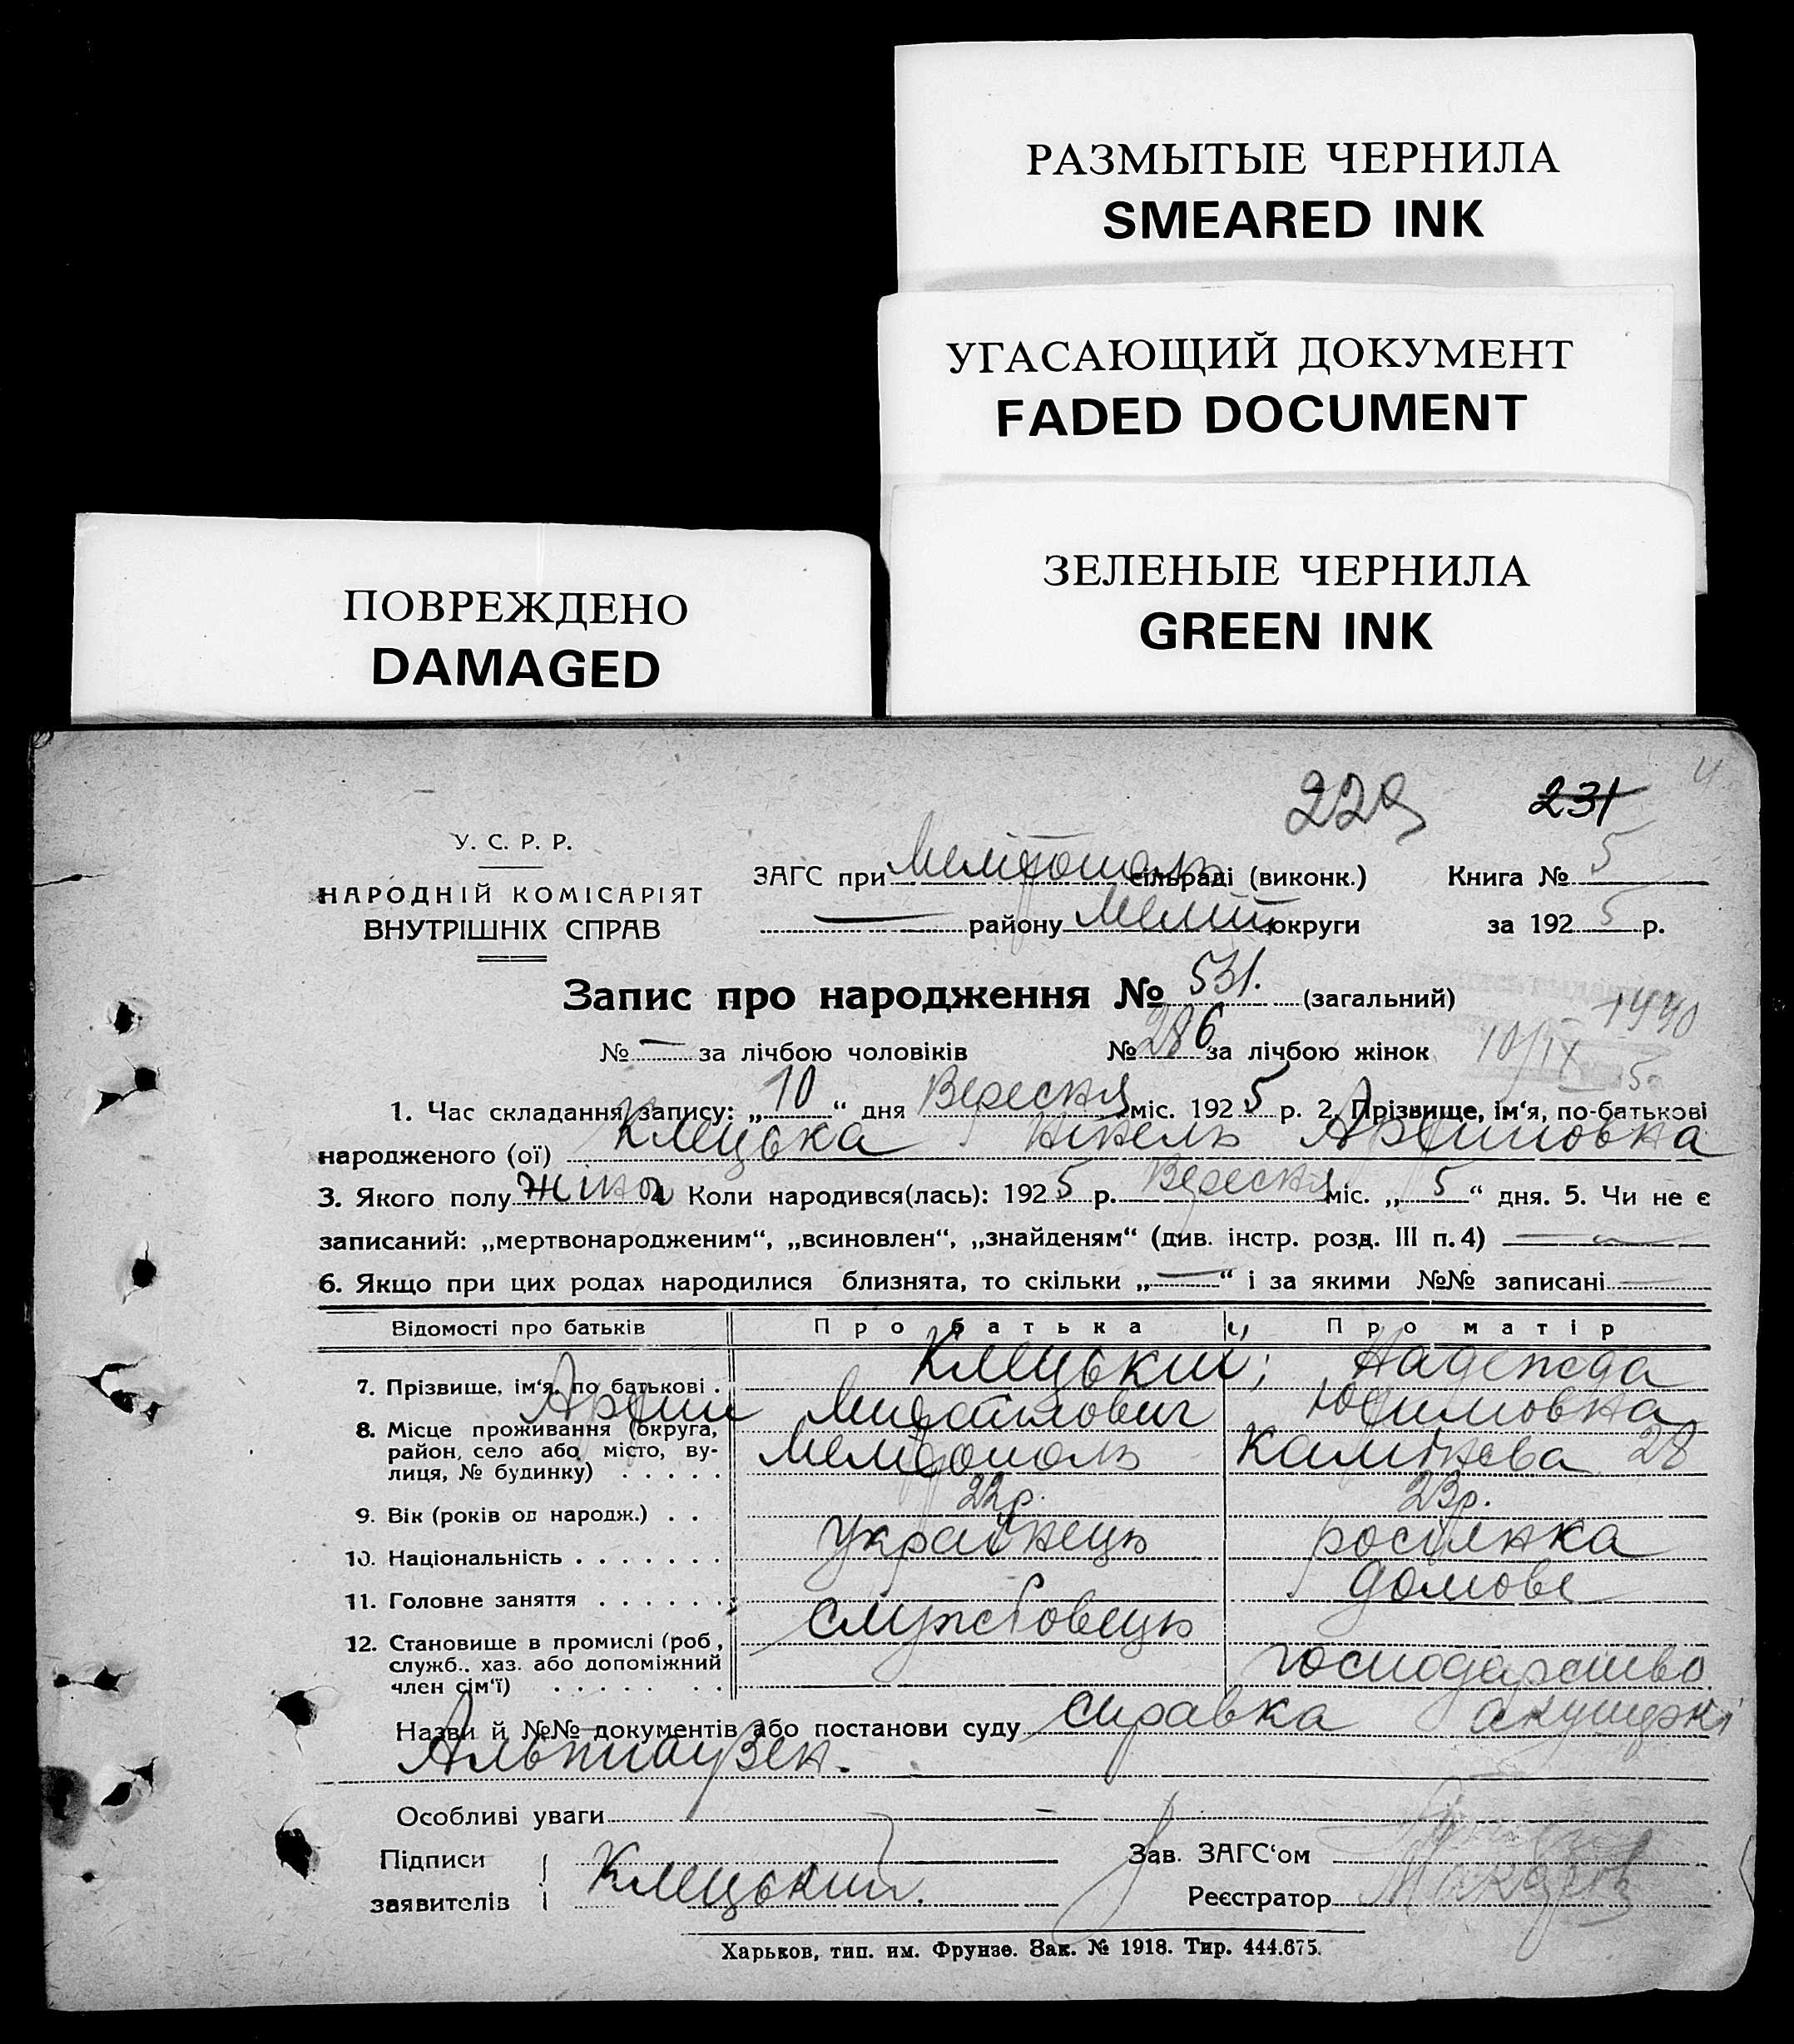 РАЗМЫТЫЕ ЧЕРНИЛА
SMEARED INK
УГАСАЮЩИЙ ДОКУМЕНТ
FADED DOCUMENT
ПОВРЕЖДЕНО
DAMAGED
ЗЕЛЕНЫЕ ЧЕРНИЛА
GREEN INK
229 231 4
У. С. Р. Р.
НАРОДНІЙ КОМІСАРІЯТ
ВНУТРІШНІХ СПРАВ
ЗАГС при Мелітополь сільраді (виконк.) Книга № 5
— району Меліт округи за 1925 р.
Запис про народження № 531. (загальний)
№ — за лічбою чоловіків № 286 за лічбою жінок 10/IX 5
1. Час складання запису: „10“ дня Вересня міс. 1925 р. 2. Прізвище, ім‘я, по-батькові
народженого (ої) Клецька Нінель Арсиповна
3. Якого полу жіно 4. Коли народився(лась): 1925 р. Вересня міс. „5“ дня. 5. Чи не є
записаний: „мертвонародженим“, „всиновлен“, „знайденям“ (див. інстр. розд. III п. 4) —
6. Якщо при цих родах народилися близнята, то скільки „—“ і за якими №№ записані —
Відомості про батьків Про батька Про матір
7. Прізвище, ім‘я, по батькові . Клецький; Надежда
Михайлович Юхимовна
8. Місце проживання (округа,
район, село або місто, ву-
лиця, № будинку) . . . . . Мелітополь Калінєва 28
9. Вік (років од народж.) . . 22р. 23р.
10. Національність . . . . . . . українець росіянка
11. Головне заняття . . . . . . службовець домове
12. Становище в промислі (роб.,
служб., хаз. або допоміжний
член сім‘ї) . . . . . . . господарство
Назви й №№ документів або постанови суду справка акушеркі
Альтгаузен.
Особливі уваги —
Підписи Зав. ЗАГС‘ом
заявителів Клецький. Реєстратор
Харьков, тип. им. Фрунзе. Зак. № 1918. Тир. 444.675.